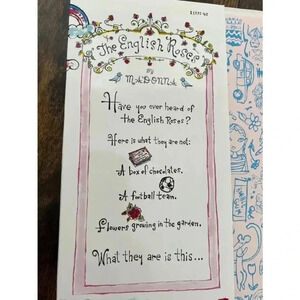 The English Roses
BY
MADONNA
Have you ever heard of
the English Roses?
Here is what they are not:
A box of chocolates.
A football team.
Flowers growing in the garden.
What they are is this...